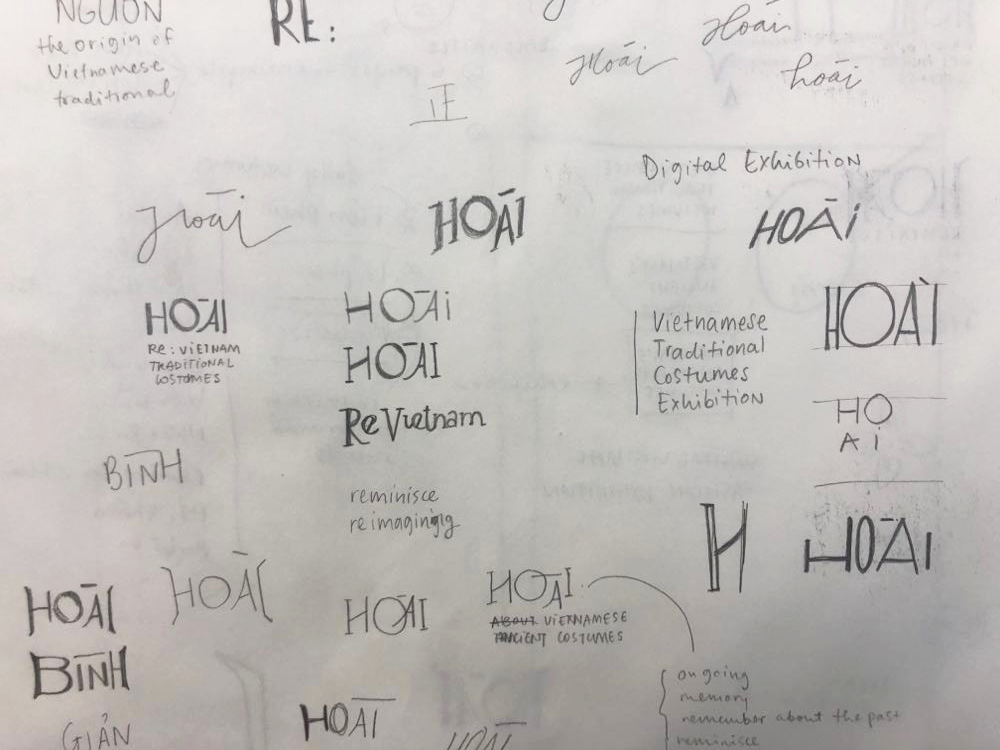 NGUỒN
the origin of
Vietnamese
traditional
RE:
Hoāi
Hoāi
hoāi
正
Digital Exhibition
Hoāi
HOĀI
HOĀi
HOĀI
RE: VIETNAM
TRADITIONAL
COSTUMES
HOĀi
HOĀI
Re Vietnam
Vietnamese
Traditional
Costumes
Exhibition
HOÀI
HO
AI
BÌNH
reminisce
reimagining
H
HOĀI
HOĀI
HOĀI
HOĀI
HOĀI
ABOUT VIETNAMESE
ANCIENT COSTUMES
BĪNH
GIẢN
HOĀI
HOĀI
on going
memory
remember about the past
reminisce